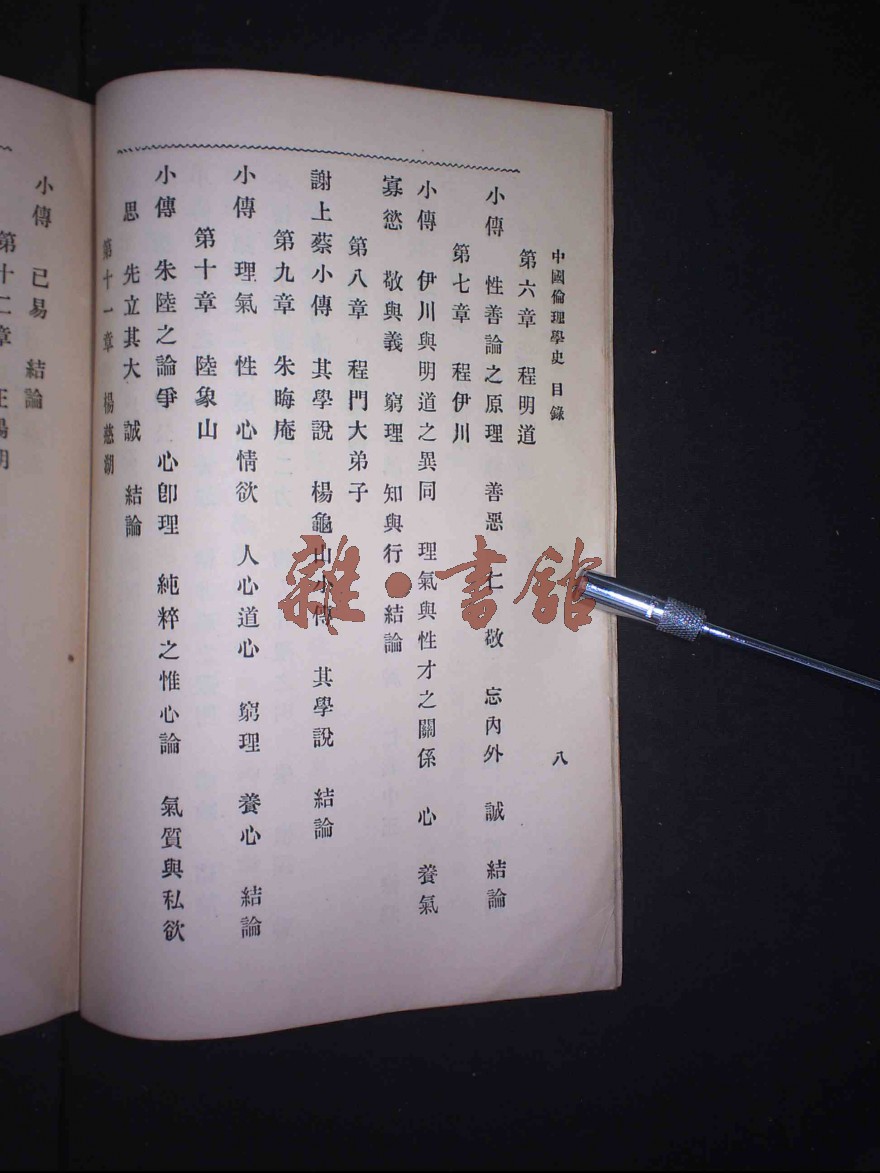 中國倫理學史 目錄 八
第六章 程明道
小傳 性善論之原理 善惡 仁 敬 忘內外 誠 結論
第七章 程伊川
小傳 伊川與明道之異同 理氣與性才之關係 心 養氣
寡慾 敬與義 窮理 知與行 結論
第八章 程門大弟子
謝上蔡小傳 其學說 楊龜山小傳 其學說 結論
第九章 朱晦庵
小傳 理氣 性 心情欲 人心道心 窮理 養心 結論
第十章 陸象山
小傳 朱陸之論爭 心卽理 純粹之惟心論 氣質與私欲
思 先立其大 誠 結論
第十一章 楊慈湖
小傳 已易 結論
第十二章 王陽明
雜·書館